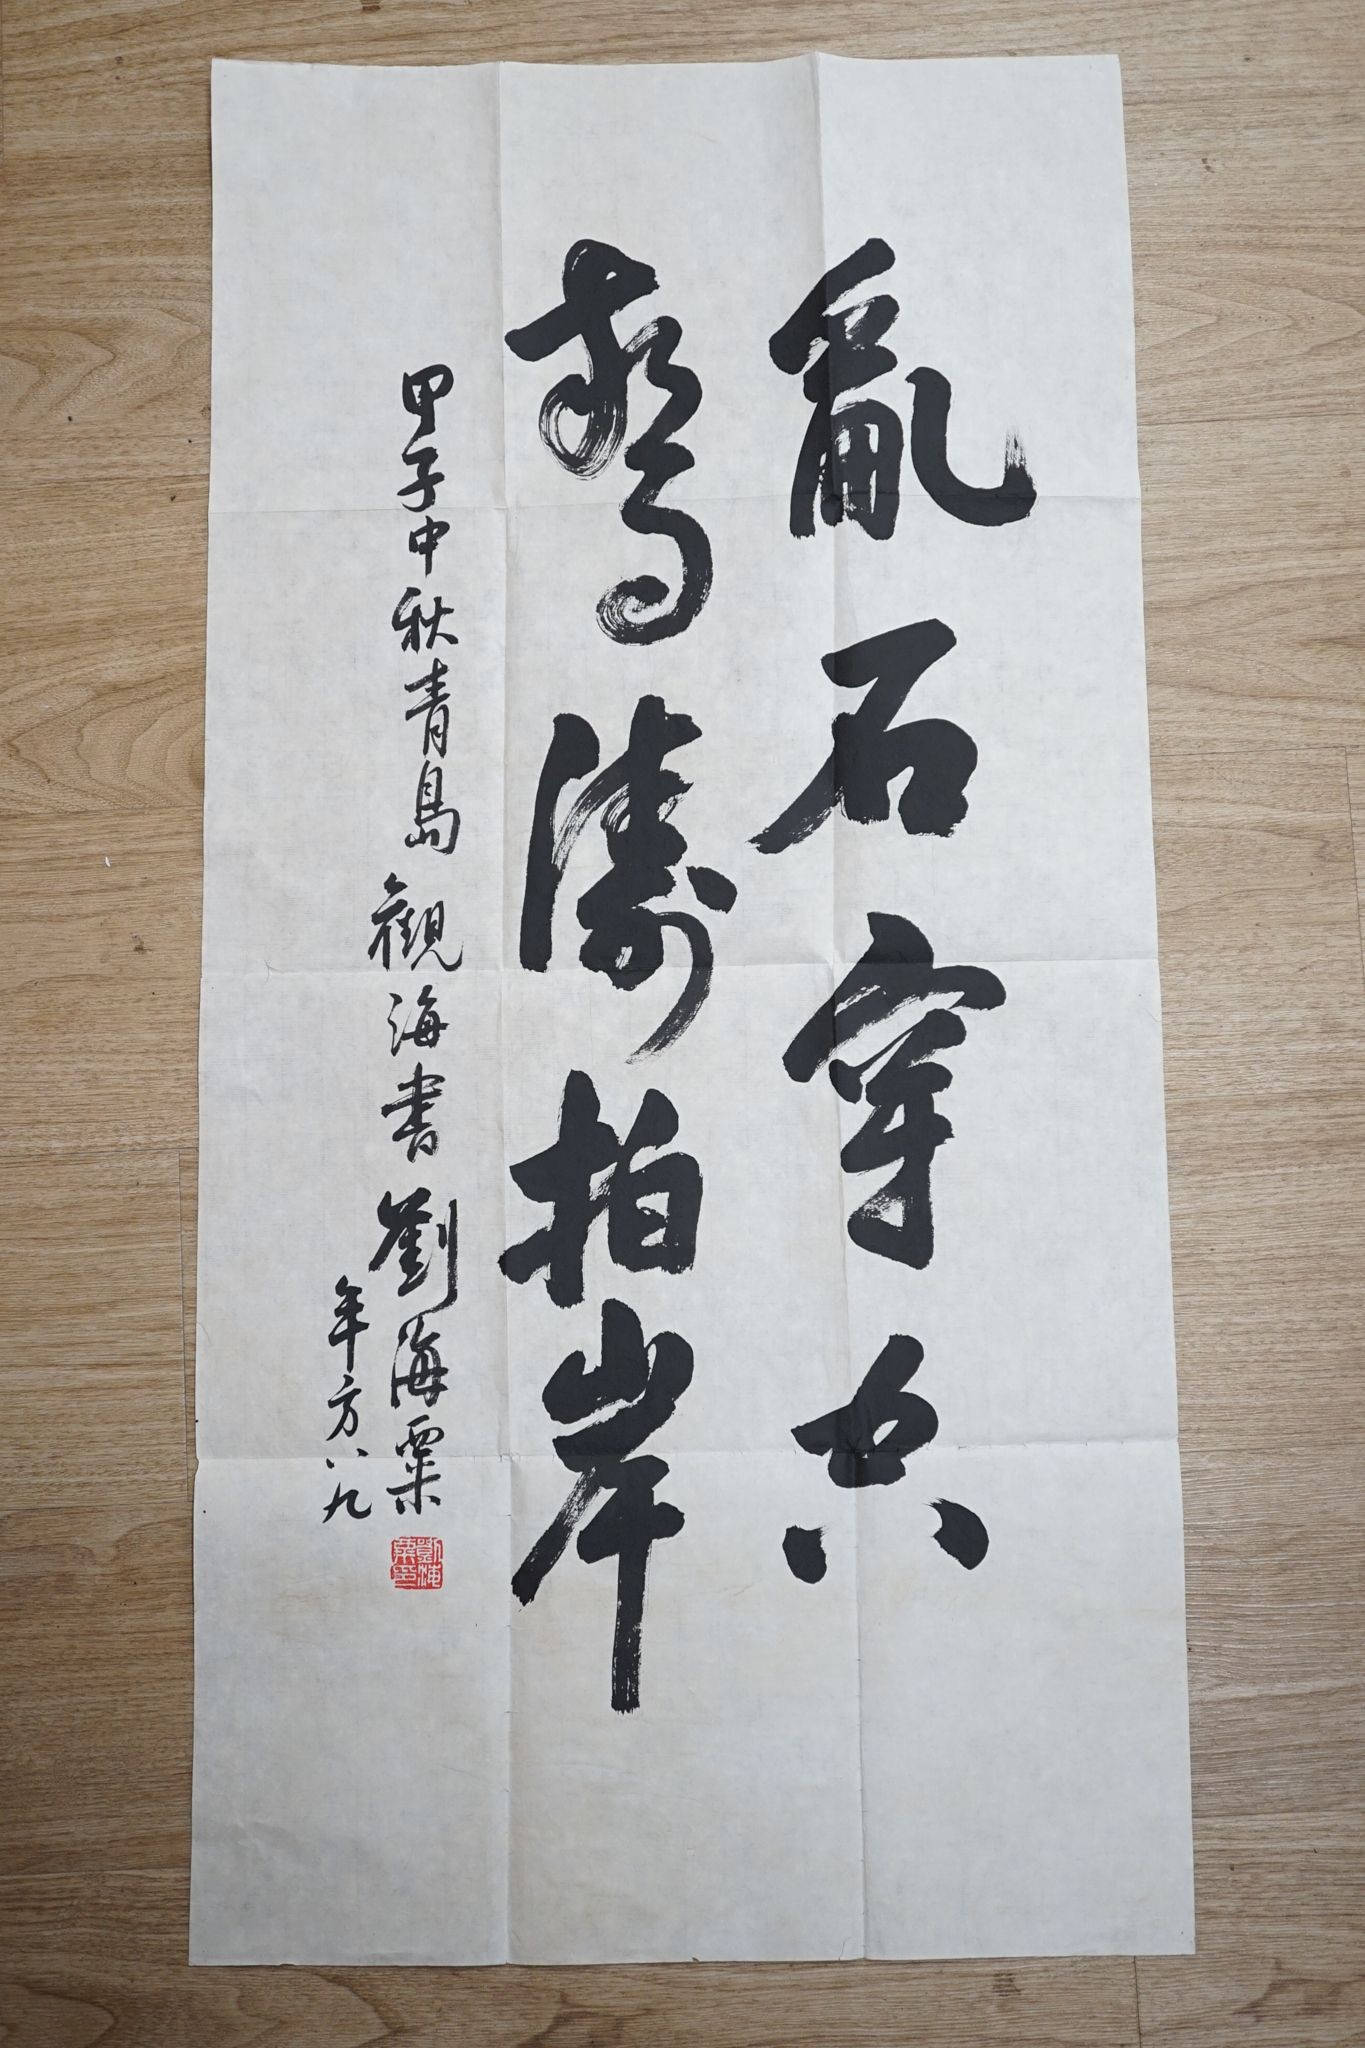 亂石穿空
驚濤拍岸
甲子中秋青島觀海書劉海粟
年方八九
劉海粟印